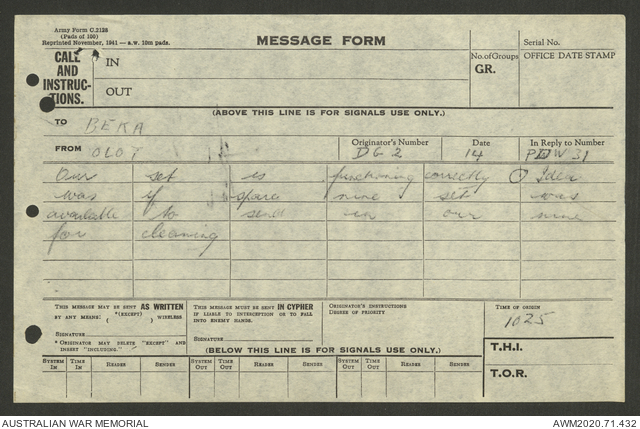 Army Form C.2128
(Pads of 100)
Reprinted November, 1941 — a.w. 10m pads.
MESSAGE FORM
Serial No.
CALL AND INSTRUC-TIONS.
IN
OUT
No. of Groups
GR.
OFFICE DATE STAMP
(ABOVE THIS LINE IS FOR SIGNALS USE ONLY.)
TO BEKA
FROM OLO
Originator's Number DG2
Date 14
In Reply to Number 31
Our set is functioning correctly Idea
was if spare nine set was
available to send in our nine
for cleaning
THIS MESSAGE MAY BE SENT AS WRITTEN
BY ANY MEANS *(EXCEPT) ( ) WIRELESS
SIGNATURE
* ORIGINATOR MAY DELETE "EXCEPT" AND
INSERT "INCLUDING."
THIS MESSAGE MUST BE SENT IN CYPHER
IF LIABLE TO INTERCEPTION OR TO FALL
INTO ENEMY HANDS.
SIGNATURE
ORIGINATOR'S INSTRUCTIONS
DEGREE OF PRIORITY
TIME OF ORIGIN
1025
(BELOW THIS LINE IS FOR SIGNALS USE ONLY.)
T.H.I.
T.O.R.
SYSTEM IN TIME IN READER SENDER SYSTEM OUT TIME OUT READER SENDER SYSTEM OUT TIME OUT READER SENDER
AUSTRALIAN WAR MEMORIAL
AWM2020.71.432